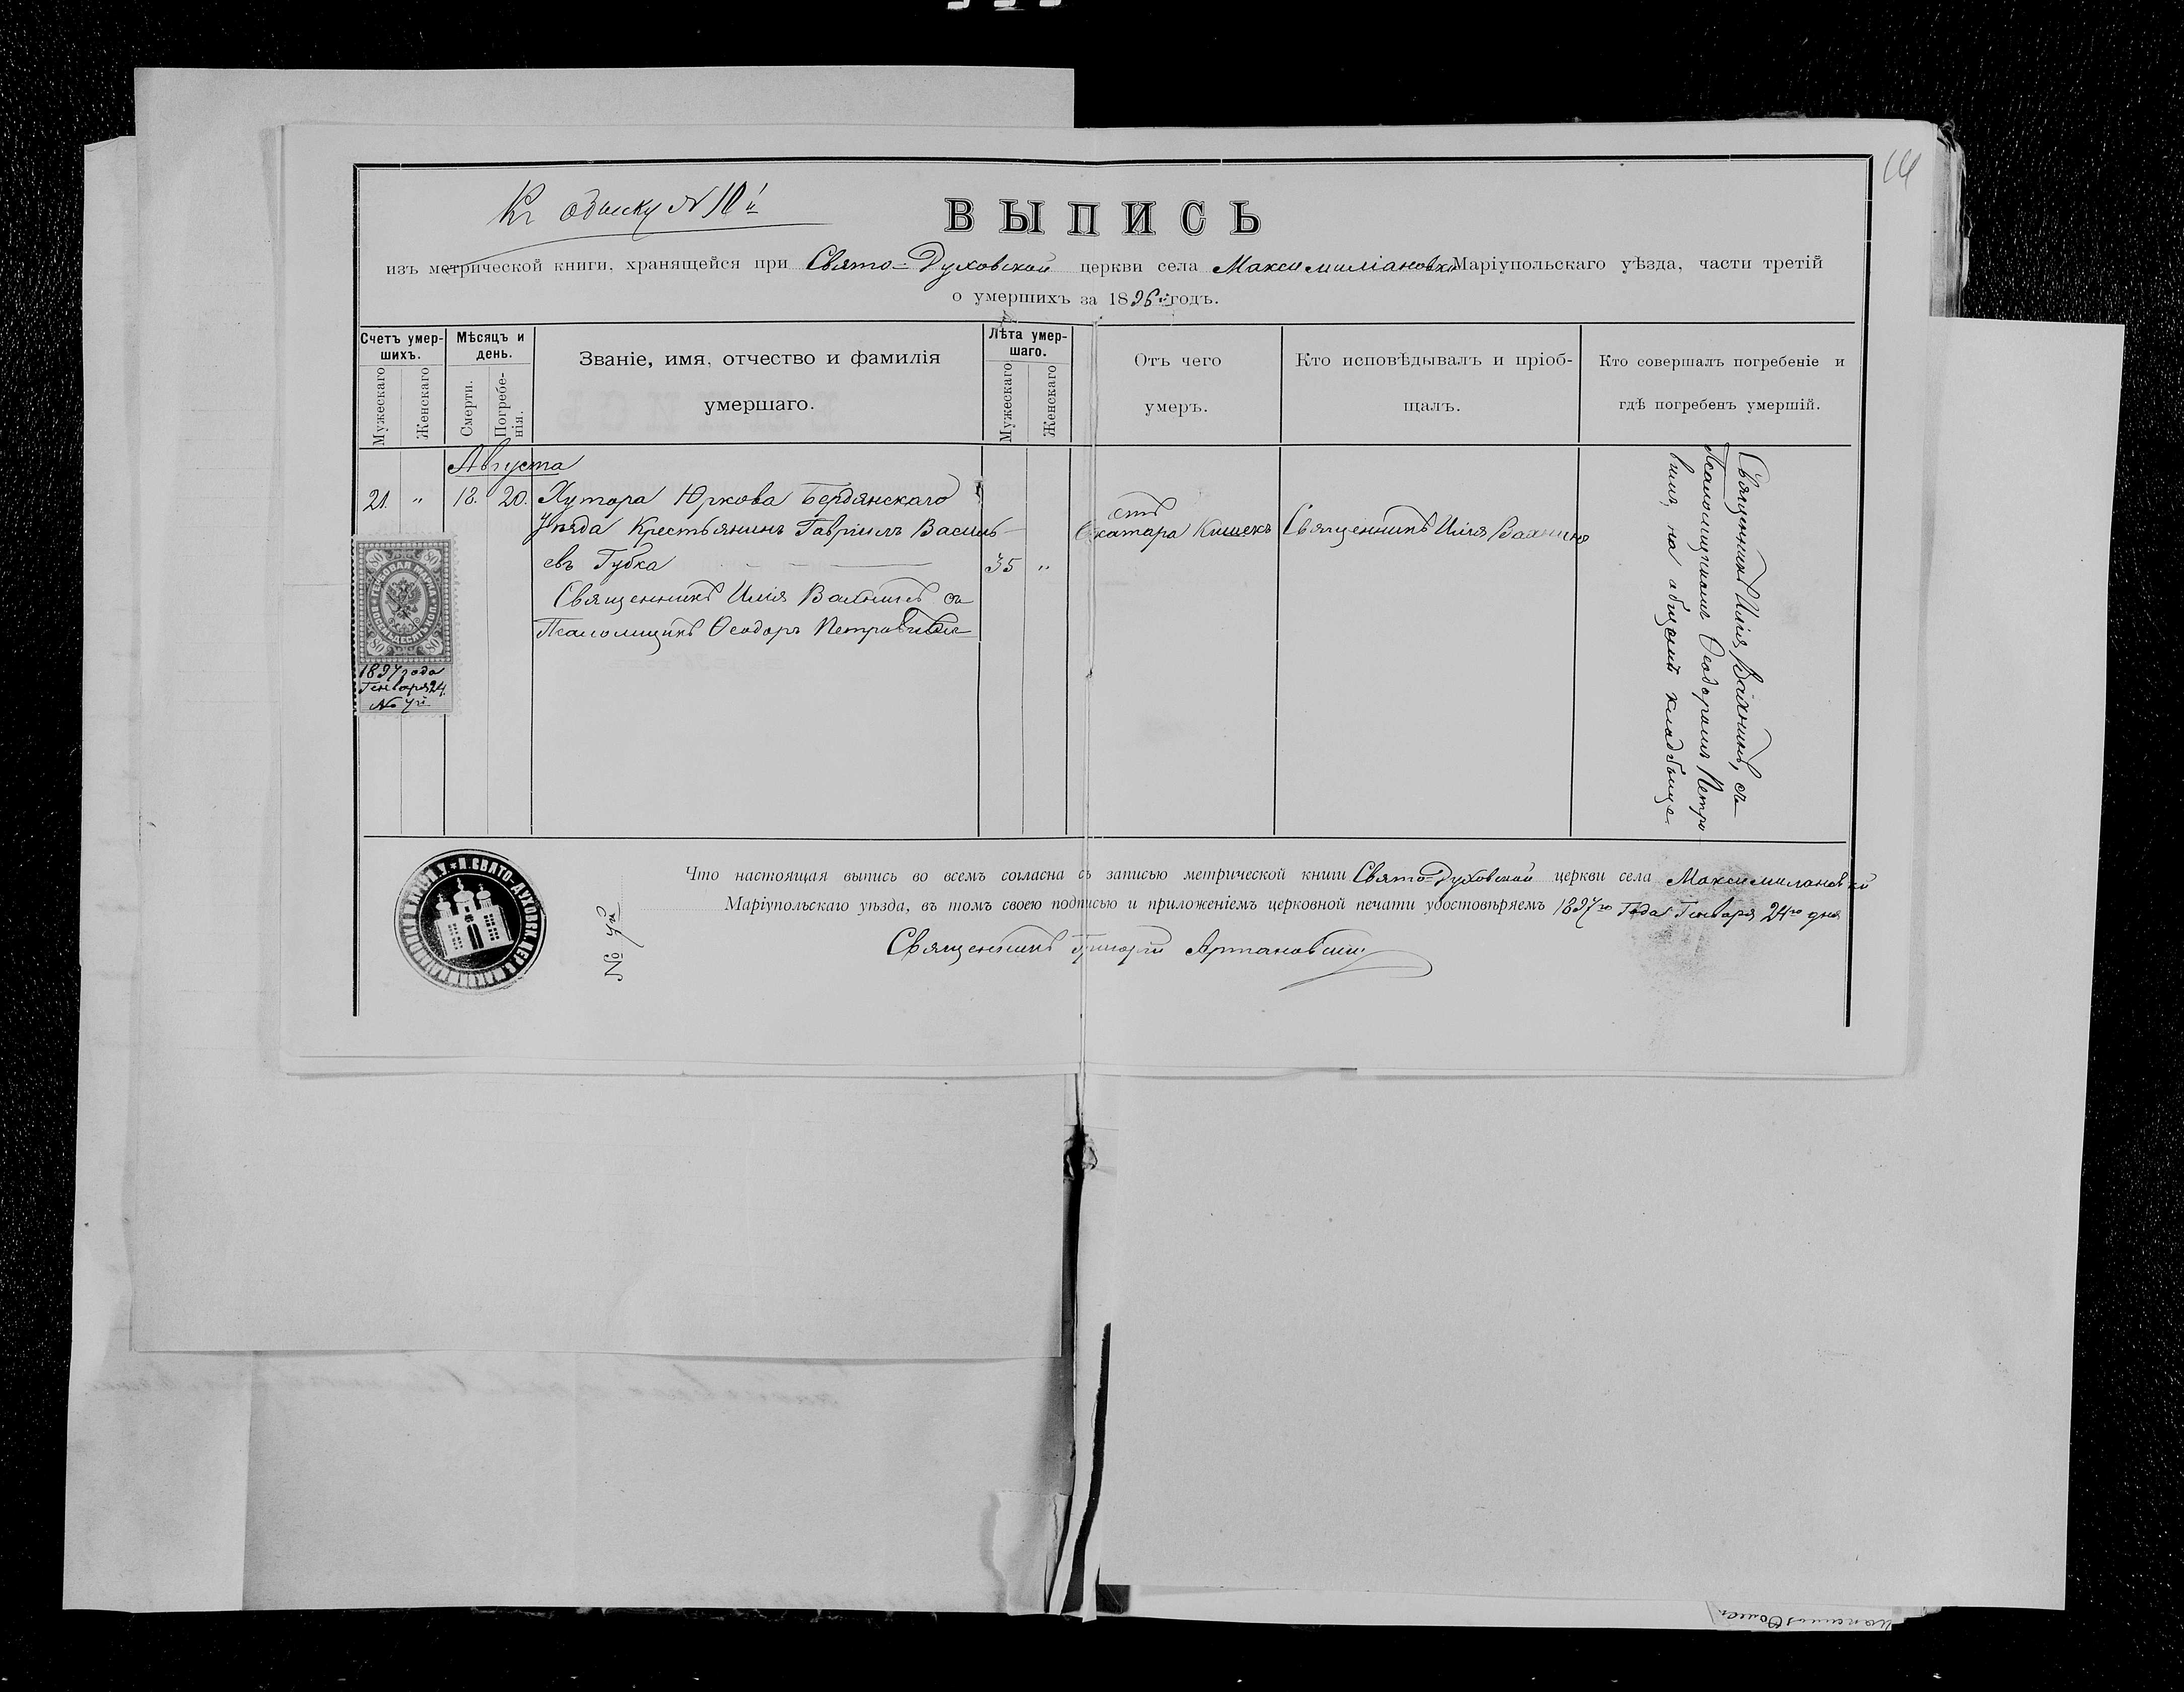 14
Къ обыску № 10й
ВЫПИСЬ
изъ метрической книги, хранящейся при Свято-Духовской церкви села Максимиліановки Маріупольскаго уѣзда, части третій
о умершихъ за 1896й годъ.
Счетъ умер-
шихъ.
Мужескаго
Женскаго
Мѣсяцъ и
день.
Смерти.
Погребе-
нія.
Званіе, имя, отчество и фамилія
умершаго.
Лѣта умер-
шаго.
Мужескаго
Женскаго
Отъ чего
умеръ.
Кто исповѣдывалъ и пріоб-
щалъ.
Кто совершалъ погребеніе и
гдѣ погребенъ умершій.
Августа
21. " 18. 20. Хутора Юркова Бердянскаго
Уѣзда Крестьянинъ Гавріилъ Василь-
евъ Губка 35 "
Священникъ Илія Вахнинъ съ
Псаломщикъ Ѳеодоръ Петровичъ
отъ
катара Кишекъ
Священникъ Илія Вахнинъ
Священникъ Илія Вахнинъ, съ
Псаломщикомъ Ѳеодоромъ Петро
вымъ, на общемъ кладбище.
80 80
ГЕРБОВАЯ МАРКА
ВОСЕМЬДЕСЯТЪ КОП.
80 80
1897 года
Генваря 24
№ 4й
Что настоящая выпись во всемъ согласна съ записью метрической книги Свято-Духовской церкви села Максимилановки
Маріупольскаго уѣзда, въ томъ своею подписью и приложеніемъ церковной печати удостовѣряемъ 1897го Года Генваря 24го дня
Священникъ Григорій Артановскій
№ 4й
СВЯТО-ДУХОВСК. ЦЕР.